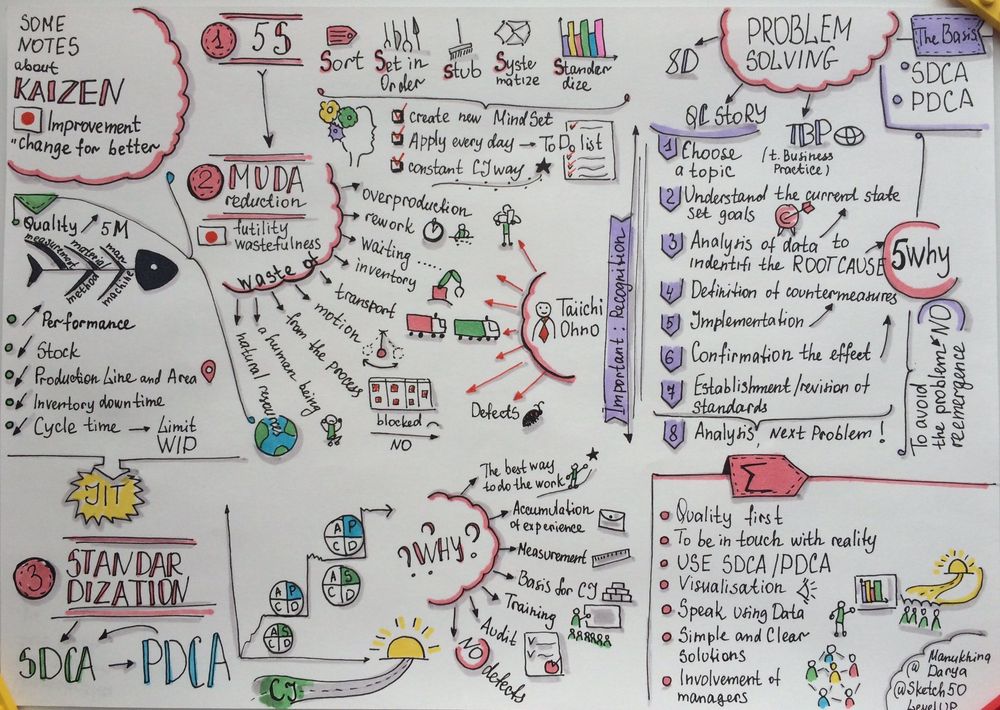 SOME
NOTES
about
KAIZEN
Improvement
"Change for better
1
5S
Sort
Set in
Order
Stub
Syste
matize
Stander
dize
create new MindSet
Apply every day → To Do list
constant CJ way
PROBLEM
SOLVING
The Basis
SDCA
PDCA
8D
QC StoRY
TBP
(t. Business
Practice)
1 Choose
a topic
2 Understand the current state
set goals
3 Analysis of data to
indentifi the ROOT CAUSE
4 Definition of countermeasures
5 Implementation
6 Confirmation the effect
7 Establishment/revision of
standards
8 Analysis, Next Problem!
5Why
To avoid
the problem - NO
reemergence
Important: Recognition
2
MUDA
reduction
futility
wastefulness
waste of
overproduction
rework
Waiting ......
inventory
transport
motion
from the process
a human being
natural resours
blocked
NO
Defects
Taiichi
Ohno
Quality 5M
measurement
material
man
method
machine
Performance
Stock
Production Line and Area
Inventory downtime
Cycle time → Limit
WIP
JIT
3
STANDAR
DIZATION
SDCA → PDCA
A S
C D
A P
C D
A S
C D
A P
C D
CJ
? WHY? ?
The best way
to do the work
Accumulation
of experience
Measurement
Basis for CJ
Training
Audit
NO
defects
Σ
Quality first
To be in touch with reality
USE SDCA/PDCA
Visualisation
Speak using Data
Simple and Clear
Solutions
Involvement of
managers
@ Manukhina
Darya
@Sketch50
LevelUP